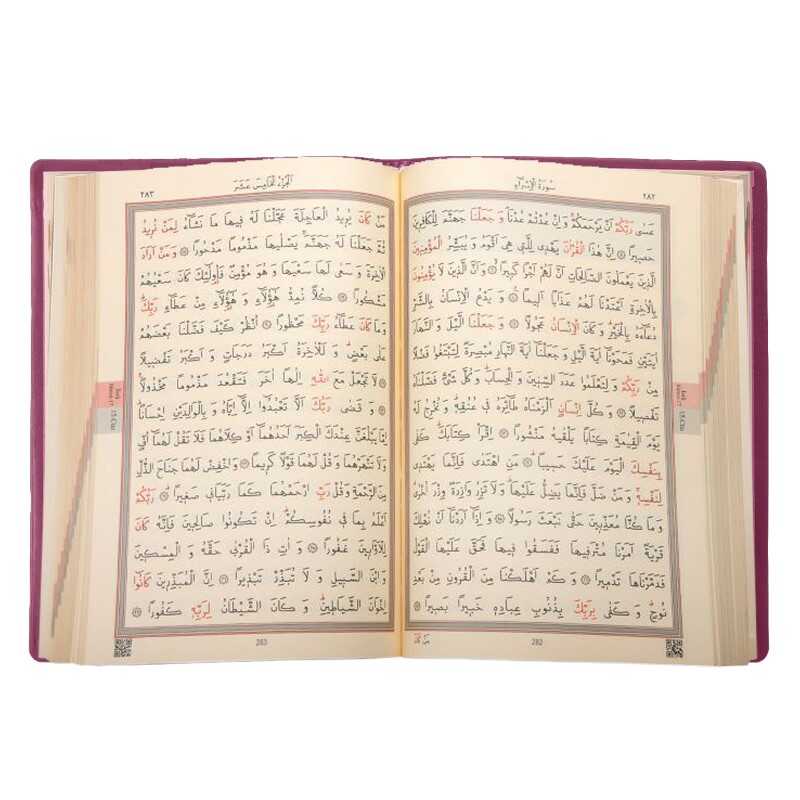 ٢٨٢
سورة الإسراء
عَسٰى رَبُّكُمْ اَنْ يَرْحَمَكُمْ وَاِنْ عُدْتُمْ عُدْنَا وَجَعَلْنَا جَهَنَّمَ لِلْكَافِرِينَ
حَصِيرًا اِنَّ هٰذَا الْقُرْاٰنَ يَهْدِي لِلَّتِي هِيَ اَقْوَمُ وَيُبَشِّرُ الْمُؤْمِنِينَ
الَّذِينَ يَعْمَلُونَ الصَّالِحَاتِ اَنَّ لَهُمْ اَجْرًا كَبِيرًا وَاَنَّ الَّذِينَ لَا يُؤْمِنُونَ
بِالْاٰخِرَةِ اَعْتَدْنَا لَهُمْ عَذَابًا اَلِيمًا وَيَدْعُ الْاِنْسَانُ بِالشَّرِّ
دُعَاءَهُ بِالْخَيْرِ وَكَانَ الْاِنْسَانُ عَجُولًا وَجَعَلْنَا الَّيْلَ وَالنَّهَارَ
اٰيَتَيْنِ فَمَحَوْنَا اٰيَةَ الَّيْلِ وَجَعَلْنَا اٰيَةَ النَّهَارِ مُبْصِرَةً لِتَبْتَغُوا فَضْلًا
مِنْ رَبِّكُمْ وَلِتَعْلَمُوا عَدَدَ السِّنِينَ وَالْحِسَابَ وَكُلَّ شَيْءٍ فَصَّلْنَاهُ
تَفْصِيلًا وَكُلَّ اِنْسَانٍ اَلْزَمْنَاهُ طَائِرَهُ فِي عُنُقِهِ وَنُخْرِجُ لَهُ
يَوْمَ الْقِيٰمَةِ كِتَابًا يَلْقٰيهُ مَنْشُورًا اِقْرَأْ كِتَابَكَ كَفٰى
بِنَفْسِكَ الْيَوْمَ عَلَيْكَ حَسِيبًا مَنِ اهْتَدٰى فَاِنَّمَا يَهْتَدِي
لِنَفْسِهِ وَمَنْ ضَلَّ فَاِنَّمَا يَضِلُّ عَلَيْهَا وَلَا تَزِرُ وَازِرَةٌ وِزْرَ اُخْرٰى
وَمَا كُنَّا مُعَذِّبِينَ حَتّٰى نَبْعَثَ رَسُولًا وَاِذَا اَرَدْنَا اَنْ نُهْلِكَ
قَرْيَةً اَمَرْنَا مُتْرَفِيهَا فَفَسَقُوا فِيهَا فَحَقَّ عَلَيْهَا الْقَوْلُ
فَدَمَّرْنَاهَا تَدْمِيرًا وَكَمْ اَهْلَكْنَا مِنَ الْقُرُونِ مِنْ بَعْدِ
نُوحٍ وَكَفٰى بِرَبِّكَ بِذُنُوبِ عِبَادِهِ خَبِيرًا بَصِيرًا
282
مَنْ كَانَ
الجزء الخامس عشر
٢٨٣
مَنْ كَانَ يُرِيدُ الْعَاجِلَةَ عَجَّلْنَا لَهُ فِيهَا مَا نَشَاءُ لِمَنْ نُرِيدُ
ثُمَّ جَعَلْنَا لَهُ جَهَنَّمَ يَصْلٰيهَا مَذْمُومًا مَدْحُورًا وَمَنْ اَرَادَ
الْاٰخِرَةَ وَسَعٰى لَهَا سَعْيَهَا وَهُوَ مُؤْمِنٌ فَاُولٰئِكَ كَانَ سَعْيُهُمْ
مَشْكُورًا كُلًّا نُمِدُّ هٰؤُلَاءِ وَهٰؤُلَاءِ مِنْ عَطَاءِ رَبِّكَ
وَمَا كَانَ عَطَاءُ رَبِّكَ مَحْظُورًا اُنْظُرْ كَيْفَ فَضَّلْنَا بَعْضَهُمْ
عَلٰى بَعْضٍ وَلَلْاٰخِرَةُ اَكْبَرُ دَرَجَاتٍ وَاَكْبَرُ تَفْضِيلًا
لَا تَجْعَلْ مَعَ اللّٰهِ اِلٰهًا اٰخَرَ فَتَقْعُدَ مَذْمُومًا مَخْذُولًا
وَقَضٰى رَبُّكَ اَلَّا تَعْبُدُوا اِلَّا اِيَّاهُ وَبِالْوَالِدَيْنِ اِحْسَانًا
اِمَّا يَبْلُغَنَّ عِنْدَكَ الْكِبَرَ اَحَدُهُمَا اَوْ كِلَاهُمَا فَلَا تَقُلْ لَهُمَا اُفٍّ
وَلَا تَنْهَرْهُمَا وَقُلْ لَهُمَا قَوْلًا كَرِيمًا وَاخْفِضْ لَهُمَا جَنَاحَ الذُّلِّ
مِنَ الرَّحْمَةِ وَقُلْ رَبِّ ارْحَمْهُمَا كَمَا رَبَّيَانِي صَغِيرًا رَبُّكُمْ
اَعْلَمُ بِمَا فِي نُفُوسِكُمْ اِنْ تَكُونُوا صَالِحِينَ فَاِنَّهُ كَانَ
لِلْاَوَّابِينَ غَفُورًا وَاٰتِ ذَا الْقُرْبٰى حَقَّهُ وَالْمِسْكِينَ
وَابْنَ السَّبِيلِ وَلَا تُبَذِّرْ تَبْذِيرًا اِنَّ الْمُبَذِّرِينَ كَانُوا
اِخْوَانَ الشَّيَاطِينِ وَكَانَ الشَّيْطَانُ لِرَبِّهِ كَفُورًا
283